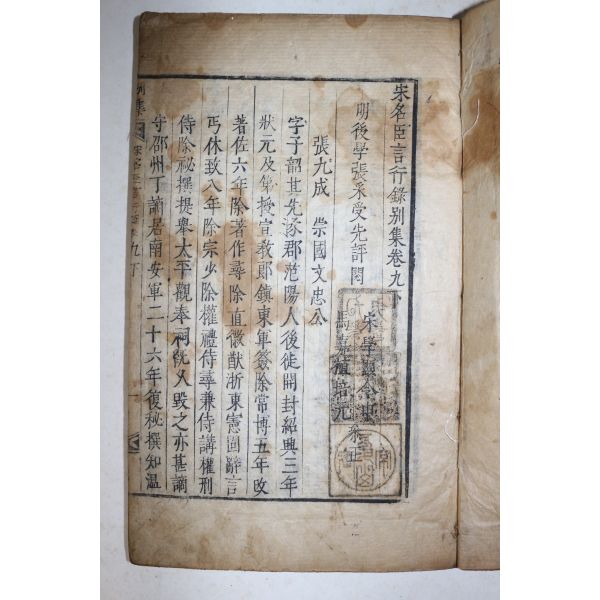 宋名臣言行錄別集卷九下
明後學張采受先評閱
宋學顯令申
馬嘉植培元叅正
張九成 崇國文忠公
字子韶其先涿郡范陽人後徙開封紹興三年
狀元及第授宣教郎鎮東軍簽除常博五年改
著佐六年除著作尋除直徽猷浙東憲固辭言
丐休致八年除宗少除權禮侍尋兼侍講權刑
侍除祕撰提舉太平觀奉祠既入毀之亦甚謫
守邵州丁謫居南安軍二十六年復秘撰知溫
別集
九下